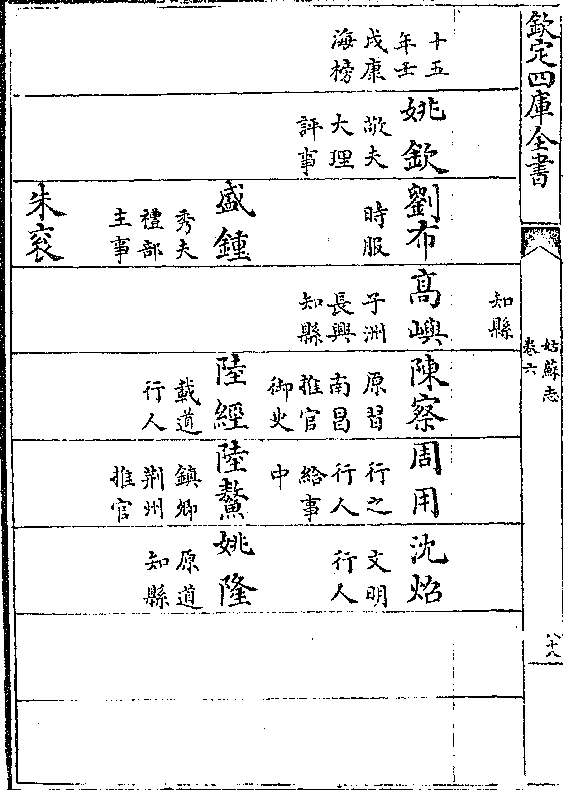 欽定四庫全書
姑蘇志
卷六
八十八
十五
年壬
戌康
海榜
姚欽
敬夫
大理
評事
劉布
時服
盛鍾
秀夫
禮部
主事
朱衮
知縣
高嶼
子洲
長興
知縣
陳察
原習
南昌
推官
御史
陸經
載道
行人
周用
行之
行人
給事
中
陸鰲
鎮卿
荆州
推官
沈炤
文明
行人
姚隆
原道
知縣